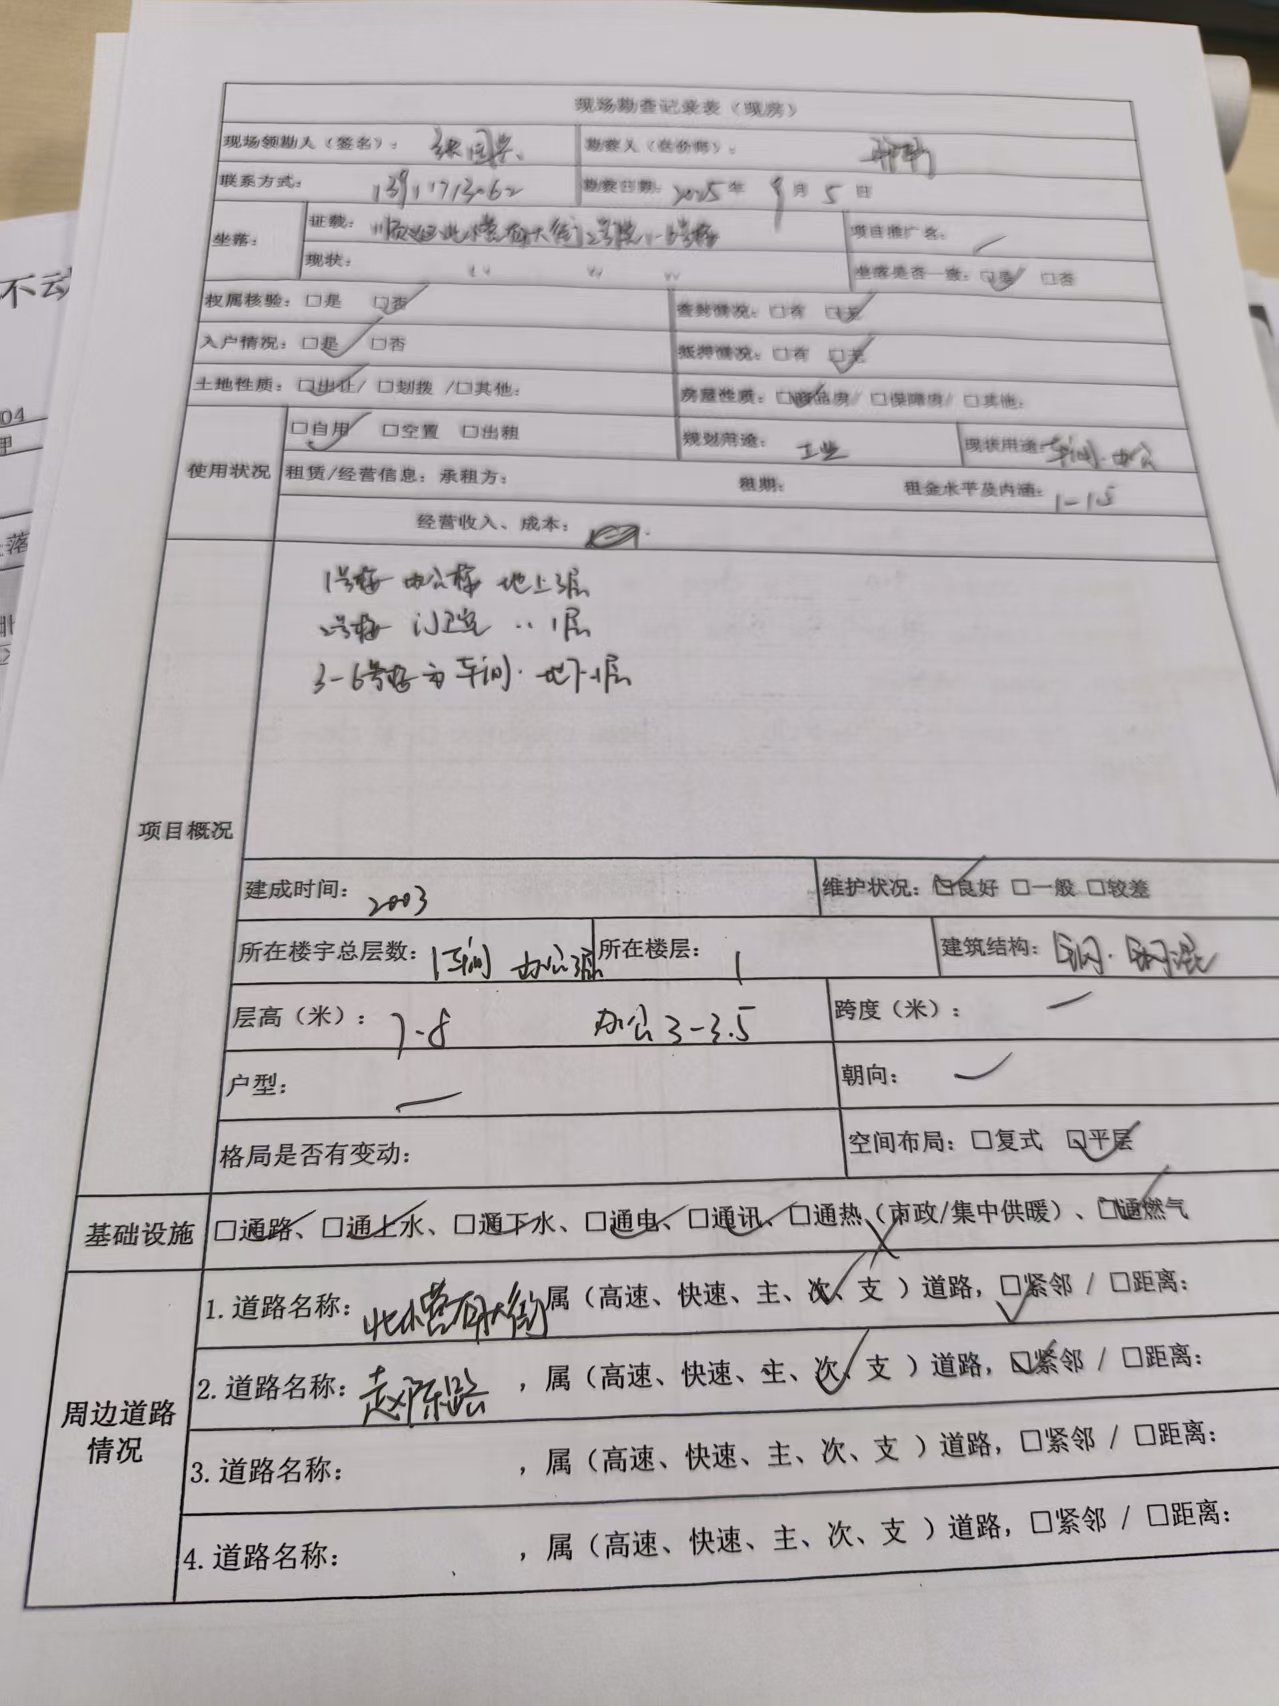 现场勘查记录表（现房）
现场领勘人（签名）： 张国 勘察人（估价师）：
联系方式： 勘察日期：2025年9月5日
坐落： 证载：顺义区北小营 大街2号院1-6号楼 项目推广名：
现状： 〃 〃 〃 坐落是否一致：☑是 □否
权属核验：□是 ☑否 查封情况：□有 ☑无
入户情况：☑是 □否 抵押情况：□有 ☑无
土地性质：☑出让/ □划拨 /□其他： 房屋性质：☑商品房/ □保障房/ □其他：
使用状况 ☑自用 □空置 □出租 规划用途：工业 现状用途：车间·办公
租赁/经营信息：承租方： 租期： 租金水平及内涵：1-1.5
经营收入、成本：
1号楼 办公楼 地上3层
2号楼 门卫室 〃 1层
3-6号楼为车间· 地下-1层
项目概况
建成时间：2003 维护状况：☑良好 □一般 □较差
所在楼宇总层数：1车间 办公3层 所在楼层：1 建筑结构：钢·钢混
层高（米）：7-8 办公3-3.5 跨度（米）：
户型： 朝向：
格局是否有变动： 空间布局：□复式 ☑平层
基础设施 ☑通路、☑通上水、□通下水、☑通电、☑通讯、□通热（市政/集中供暖）、☑通燃气
1.道路名称：北小营 大街 属（高速、快速、主、次✓、支 ）道路，☑紧邻 / □距离：
2.道路名称：赵陈路 ，属（高速、快速、主、次✓、支 ）道路，☑紧邻 / □距离：
周边道路情况
3.道路名称： ，属（高速、快速、主、次、支 ）道路，□紧邻 / □距离：
4.道路名称： ，属（高速、快速、主、次、支 ）道路，□紧邻 / □距离：
不动
04
落